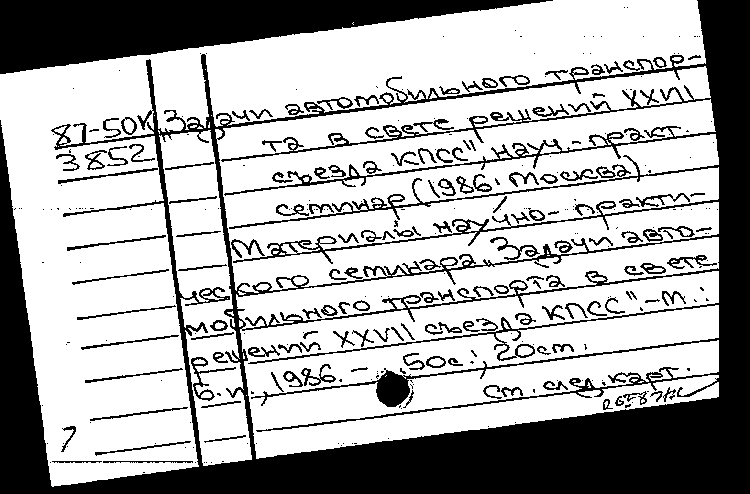 87-50К „Задачи автомобильного транспор-
3852 та в свете решений XXVII
съезда КПСС", науч.-практ.
семинар (1986. Москва).
Материалы научно-практи-
ческого семинара „Задачи авто-
мобильного транспорта в свете
решений XXVII съезда КПСС".-М.:
Б.и., 1986.- 50с.; 20см.
ст. след. карт.
7